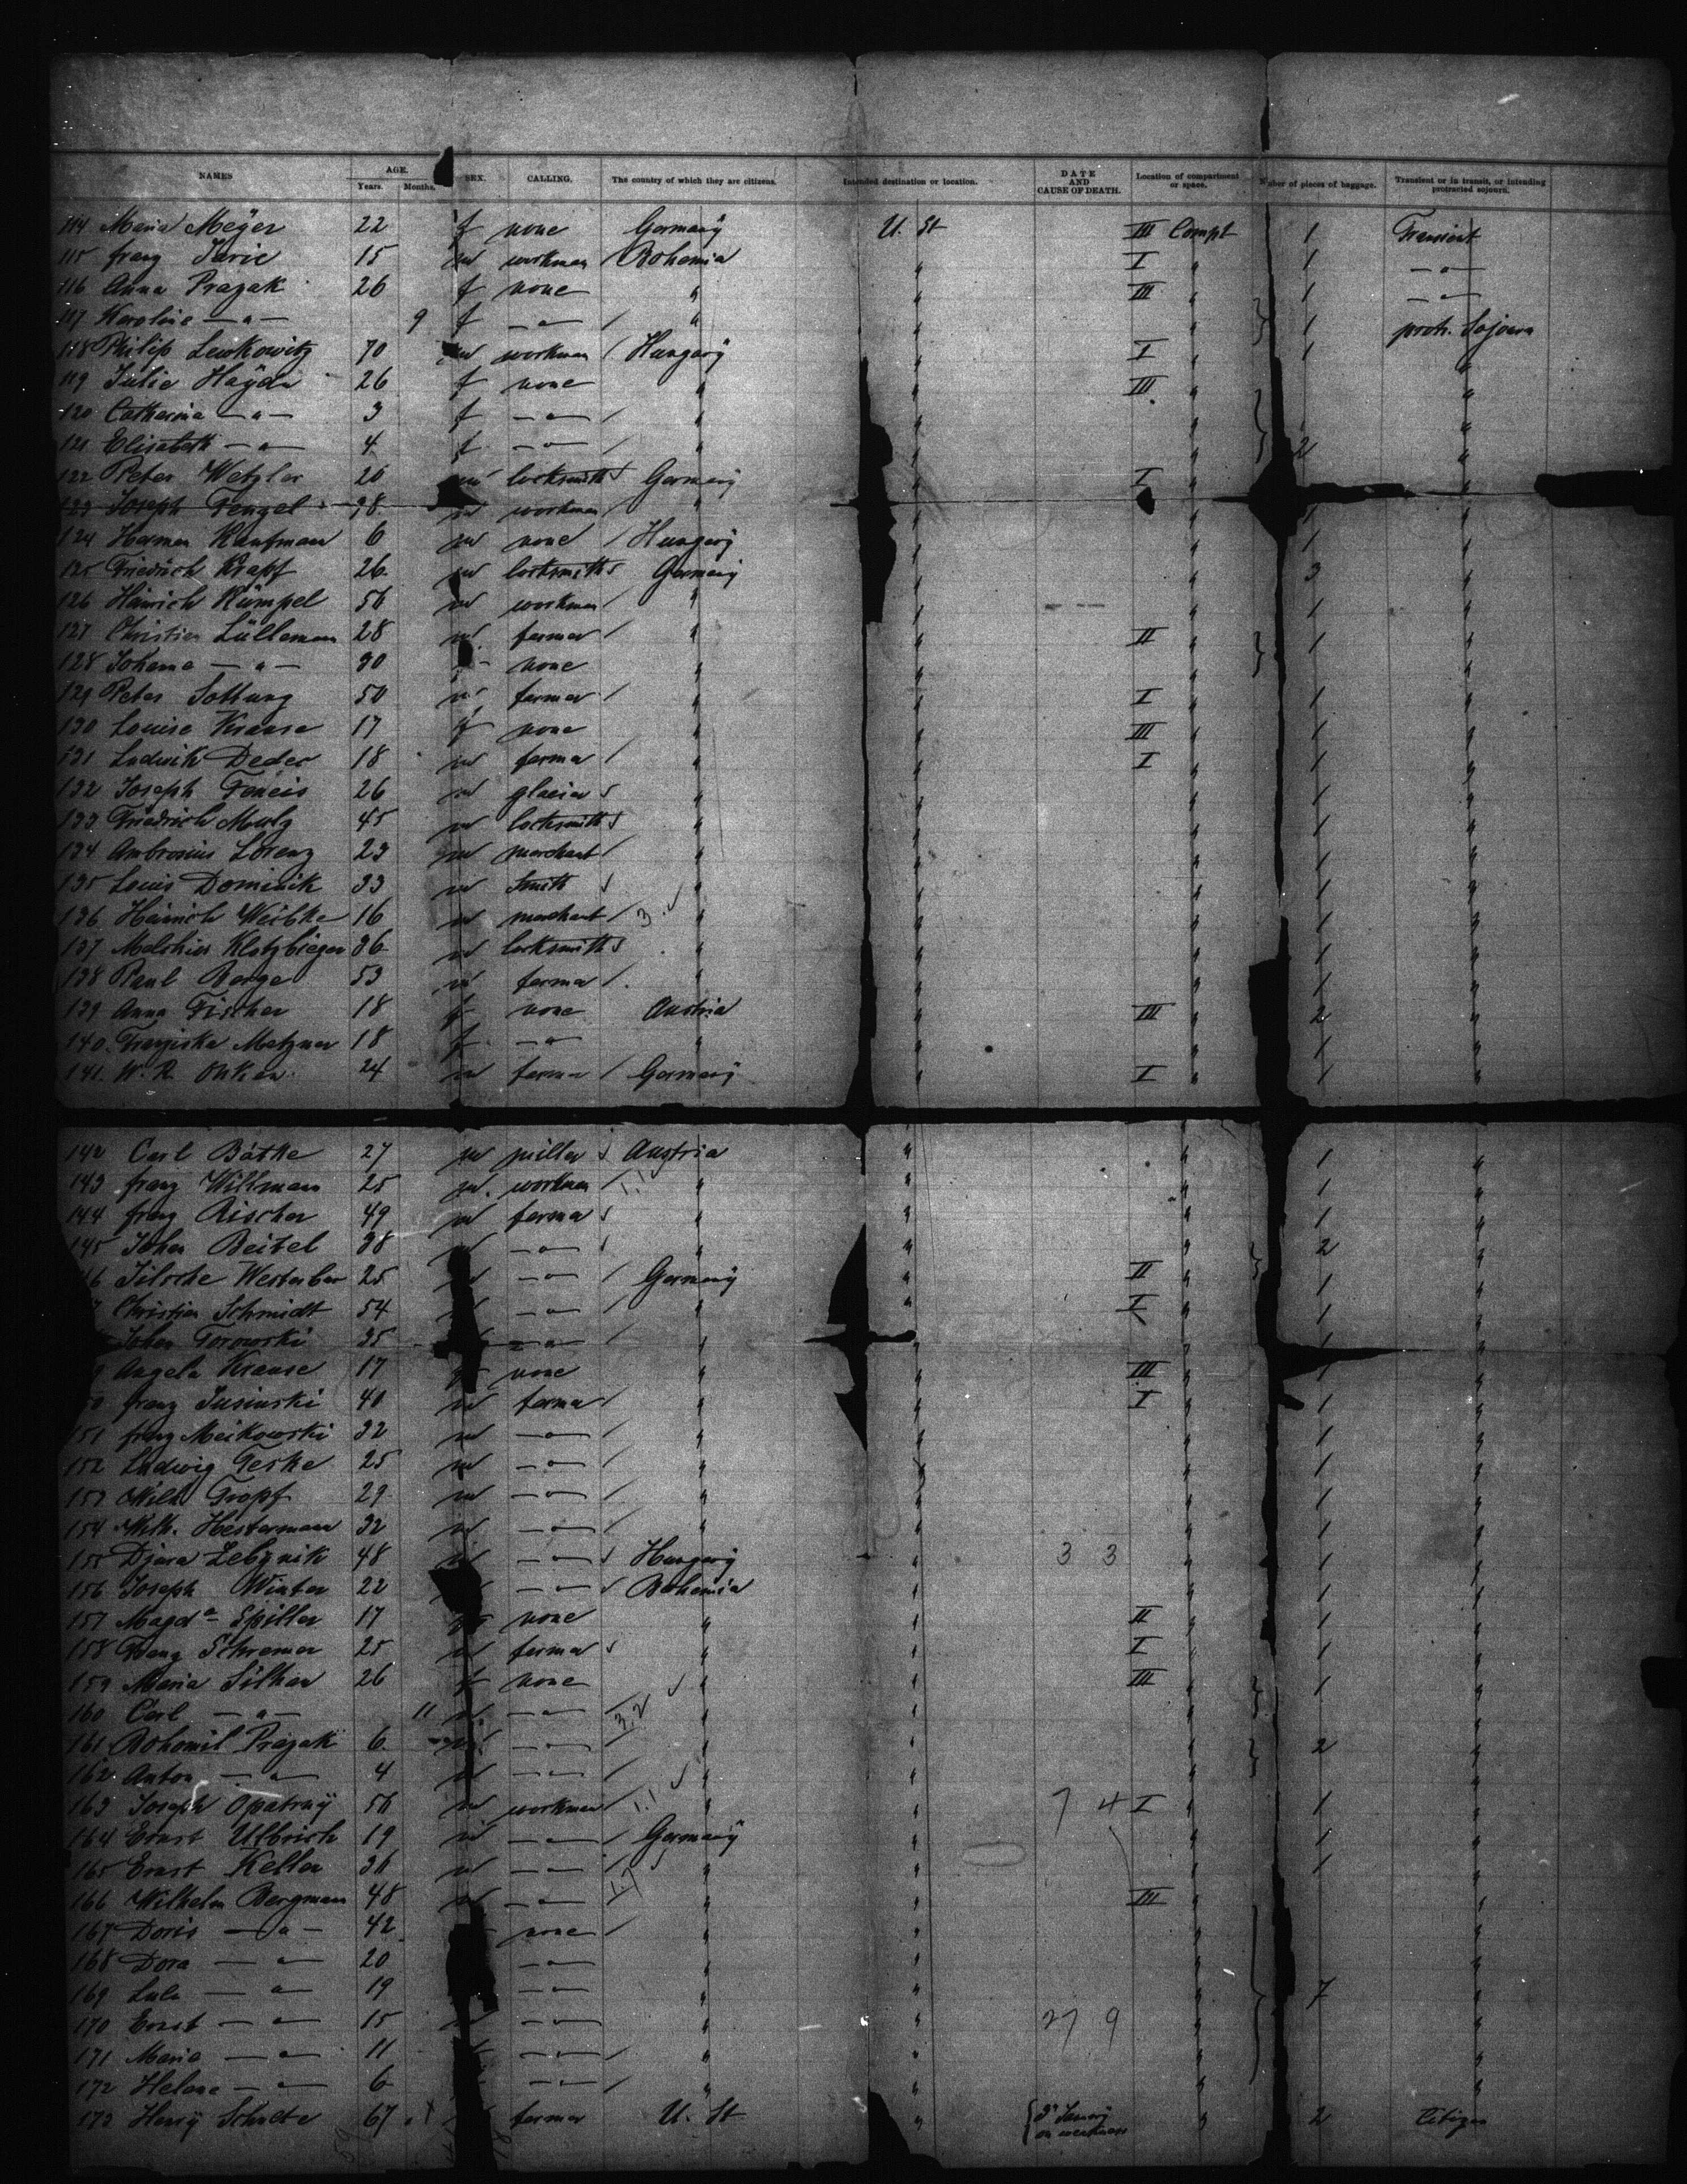 NAMES AGE. Years. Months. SEX. CALLING. The country of which they are citizens. Intended destination or location. DATE AND CAUSE OF DEATH. Location of compartment or space. Number of pieces of baggage. Transient or in transit, or intending protracted sojourn.
114 Maria Meÿer 22 f none Germanÿ U. St III Compt 1 Transient
115 franz 15 m workman / Bohemia " I " 1 — " —
116 Anna Prazak 26 f none " " III " 1 — " —
117 Karoline — " — 9 f — " — / " " " 1 protr. Sojourn
118 Philip Lewkowitz 70 m workman / Hungarÿ " I " 1
119 Julie Haÿdu 26 f none " " III " "
120 Catharina — " — 3 f — " — / " " " "
121 Elisabeth — " — 4 f — " — / " " " 2 "
122 Peter Wetzler 26 m locksmith Germanÿ " I " "
123 Joseph Fengel 38 m workman / " " " 1 "
124 Herman Kaufman 6 m none / Hungarÿ " " 1 "
125 Friedrich Krapf 26 m locksmith Germanÿ " " 3 "
126 Heinrich Kümpel 56 m workman / " " " 1 "
127 Christian Lülleman 28 m farmer / " " II " 1 "
128 Johanna — " — 30 none " " " "
129 Peter Sottung 50 m farmer / " " I " 1 "
130 Louise Krause 17 f none " " III " 1 "
131 Ludwik Deder 18 m farmer / " " I " 1 "
132 Joseph 26 m glacier " " " 1 "
133 Friedrich Mutz 45 m locksmith " " " 1 "
134 Ambrosius Lorenz 23 m merchant / " " " 1 "
135 Louis Dominik 33 m Smith " " " 1 "
136 Heinrich Weibke 16 m merchant / 3. " " " 1 "
137 Melchior Klotzbieger 36 m locksmith " " " 1 "
138 Paul Berge 53 m farmer / " " " 1 "
139 Anna Fischer 18 f none Austria " III " 2 "
140. Franziska Metzner 18 f — " — " " " 1 "
141. W. R. Ohken 24 m farmer / Germanÿ " I " 1 "
142 Carl Bätke 27 m miller Austria " " 1 "
143 franz Wittman 25 m. workman / 1.1 " " " 1 "
144 franz Rischer 49 m farmer " " " 1 "
145 Johan Beitel 38 m — " — " " " 2 "
46 Westerber 25 m — " — / Germanÿ " II " 1 "
7 Christian Schmidt 54 m — " — / " " I " 1 "
Johan Torowski 35 — " — / " " " 1 "
9 Angela Krause 17 f none " " III " 1 "
50 franz Jusinski 40 m farmer / " " I " 1 "
151 franz Meikowski 32 m — " — / " " " 1 "
152 Ludwig Teske 25 m — " — / " " " 1 "
153 Wilh Tropf 29 m — " — / " " " 1 "
154 Wilh. Hesterman 32 m — " — / " " " 1 "
155 Djura Zebznik 48 m — " — Hungarÿ " 3 3 " 1 "
156 Joseph Winter 22 — " — Bohemia " " 1 "
157 Magda Spiller 17 none " " II " 1 "
158 Wenz Schremer 25 m farmer " " I " 1 "
159 Maria Silhan 26 f none " " III " 1 "
160 Carl — " — 11 m — " — 3.2 " " " "
161 Bohomil Prazak 6 m — " — " " " 2 "
162 Anton — " — 4 m — " — / " " " "
163 Joseph Opatrnÿ 56 m workman / 1.1 " " 7 4 I " 1 "
164 Ernst Ulbrich 19 m — " — / Germanÿ " " 1 "
165 Ernst Keller 36 m — " — / " " " 1 "
166 Wilhelm Bergman 48 m — " — / " " III " "
167 Doris — " — 42 none / " " " "
168 Dora — " — 20 — " — " " " "
169 Lulu — " — 19 — " — " " " 7 "
170 Ernst — " — 15 — " — " " 27 9 " "
171 Maria — " — 11 — " — / " " " "
172 Helene — " — 6 — " — / " " " "
173 Henrÿ Schulte 67 farmer U. St " on weakness " 2 Citizen